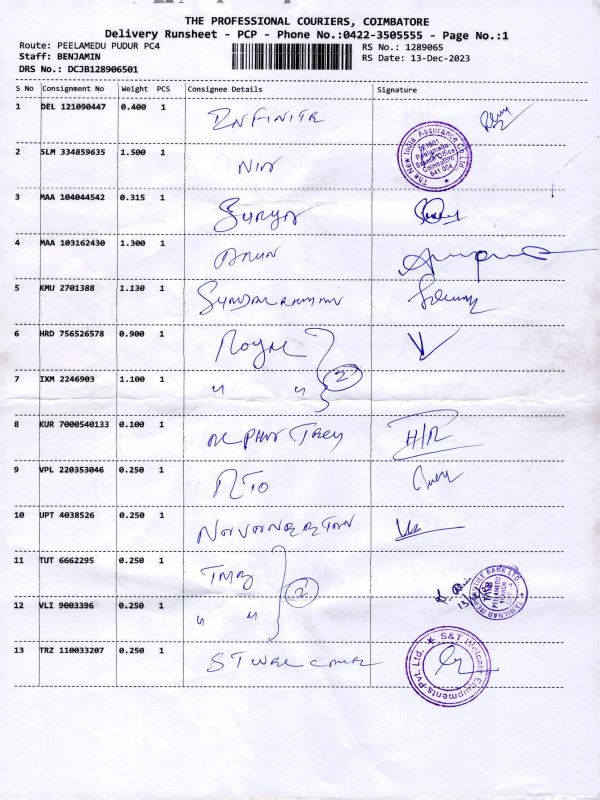 THE PROFESSIONAL COURIERS, COIMBATORE
Delivery Runsheet - PCP - Phone No.:0422-3505555 - Page No.:1
Route: PEELAMEDU PUDUR PC4
RS No.: 1289065
Staff: BENJAMIN
RS Date: 13-Dec-2023
DRS No.: DCJB128906501
S No Consignment No Weight PCS Consignee Details Signature
1 DEL 121090447 0.400 1 INFINITE
2 SLM 334859635 1.500 1 NIA
The New India Assurance Co Ltd
Coimbatore
641 004
3 MAA 104044542 0.315 1 Surya
4 MAA 103162430 1.300 1 Arun
5 KMU 2701388 1.130 1
6 HRD 756526578 0.900 1 Royal
7 IXM 2246903 1.100 1 " " 2
8 KUR 7000540133 0.100 1 H/R
9 VPL 220353046 0.250 1 RTO
10 UPT 4038526 0.250 1
11 TUT 6662295 0.250 1 TMB
12 VLI 9003396 0.250 1 " " 2
TAMILNAD MERCANTILE BANK LTD.
TMB
PEELAMEDU
BRANCH
13 TRZ 110033207 0.250 1 ST Welcare
S&T Welcare Equipments Pvt. Ltd.